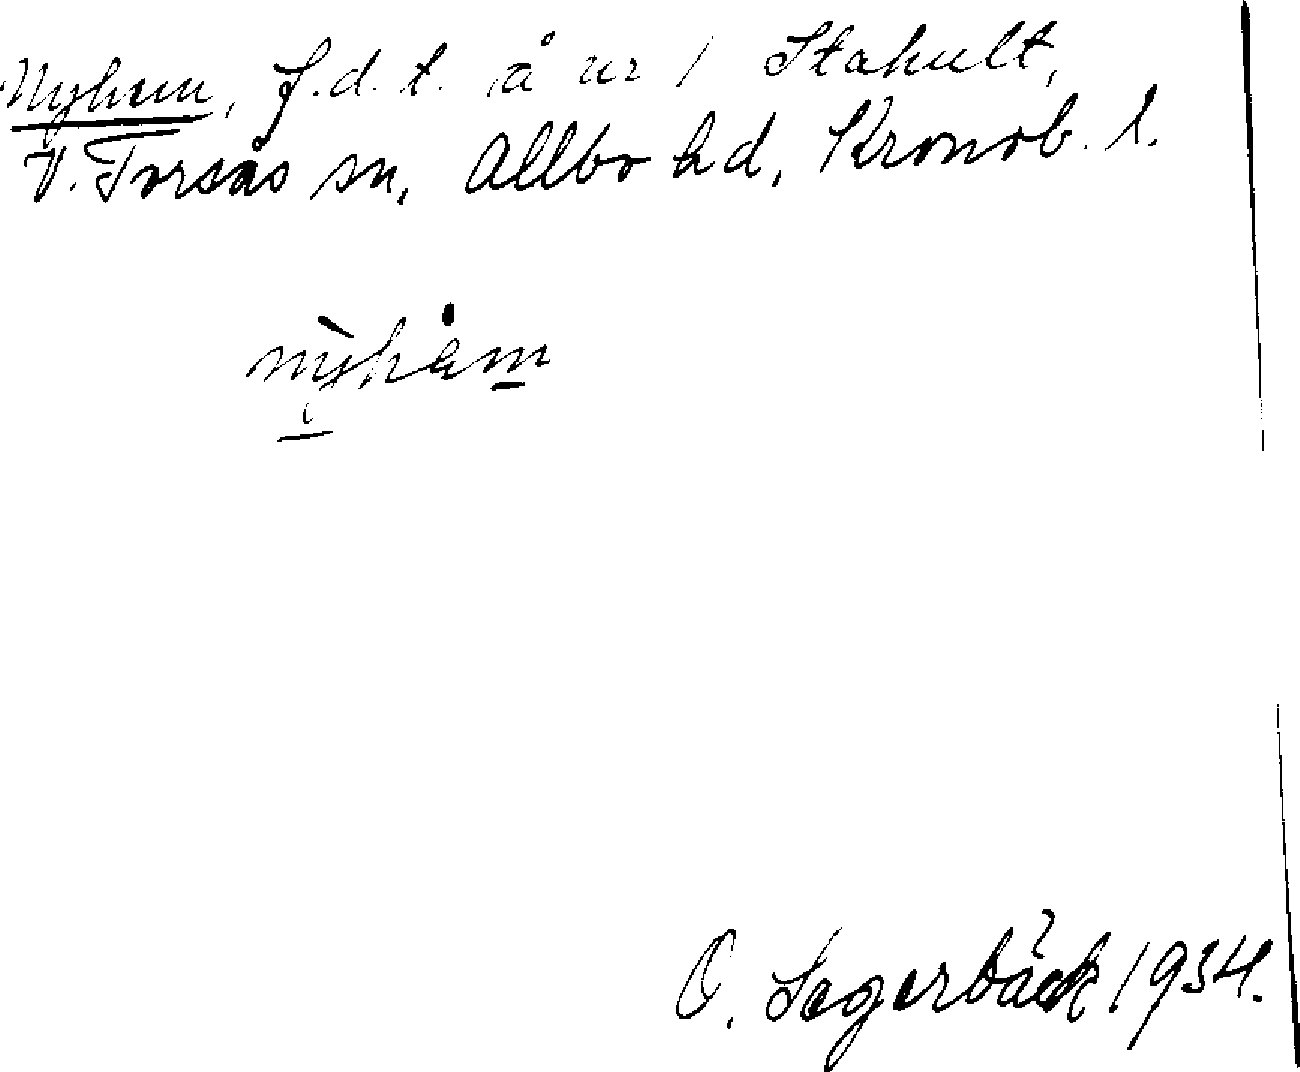 Nyhem, f.d.t. å nr 1 Stakult,
V. Torsås sn, Allbo hd, Kronob. l.
nỳhäm
i
O. Lagerbäck 1934.